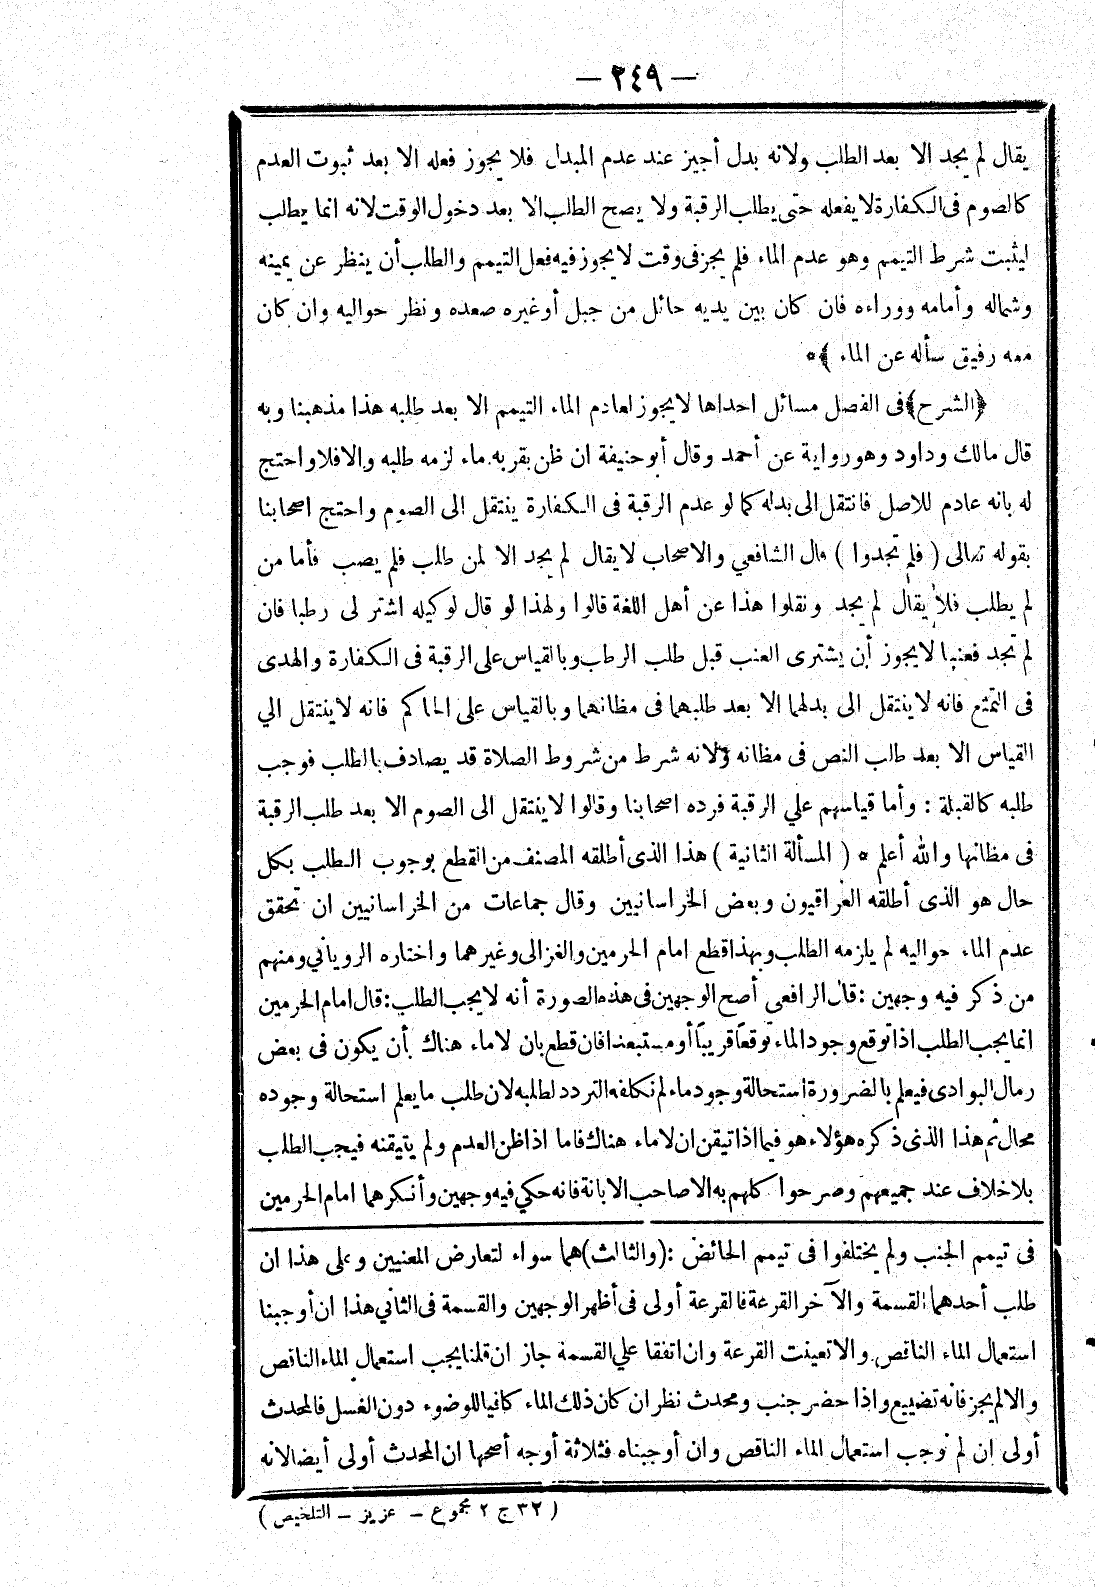 — ٢٤٩ —
يقال لم يجد الا بعد الطلب ولانه بدل أجيز عند عدم المبدل فلا يجوز فعله الا بعد ثبوت العدم
كالصوم فى الكفارة لا يفعله حتى يطلب الرقبة ولا يصح الطلب الا بعد دخول الوقت لانه انما يطلب
ليثبت شرط التيمم وهو عدم الماء فلم يجز فى وقت لا يجوز فيه فعل التيمم والطلب أن ينظر عن يمينه
وشماله وأمامه ووراءه فان كان بين يديه حائل من جبل أو غيره صعده ونظر حواليه وان كان
معه رفيق سأله عن الماء ﴾*
﴿الشرح﴾ فى الفصل مسائل احداها لا يجوز لعادم الماء التيمم الا بعد طلبه هذا مذهبنا وبه
قال مالك وداود وهو رواية عن أحمد وقال أبو حنيفة ان ظن بقربه ماء لزمه طلبه والا فلا واحتج
له بانه عادم للاصل فانتقل الى بدله كما لو عدم الرقبة فى الكفارة ينتقل الى الصوم واحتج اصحابنا
بقوله تعالى ( فلم تجدوا ) قال الشافعي والاصحاب لا يقال لم يجد الا لمن طلب فلم يصب فأما من
لم يطلب فلا يقال لم يجد ونقلوا هذا عن أهل اللغة قالوا ولهذا لو قال لوكيله اشتر لى رطبا فان
لم تجد فعنبا لا يجوز أن يشترى العنب قبل طلب الرطب وبالقياس على الرقبة فى الكفارة والهدى
فى التمتع فانه لا ينتقل الى بدلهما الا بعد طلبهما فى مظانهما وبالقياس على الحاكم فانه لا ينتقل الي
القياس الا بعد طلب النص فى مظانه ولانه شرط من شروط الصلاة قد يصادف بالطلب فوجب
طلبه كالقبلة : وأما قياسهم علي الرقبة فرده اصحابنا وقالوا لا ينتقل الى الصوم الا بعد طلب الرقبة
فى مظانها والله أعلم * ( المسألة الثانية ) هذا الذى أطلقه المصنف من القطع بوجوب الطلب بكل
حال هو الذى أطلقه العراقيون وبعض الخراسانيين وقال جماعات من الخراسانيين ان تحقق
عدم الماء حواليه لم يلزمه الطلب وبهذا قطع امام الحرمين والغزالى وغيرهما واختاره الروياني ومنهم
من ذكر فيه وجهين : قال الرافعى أصح الوجهين فى هذه الصورة أنه لا يجب الطلب : قال امام الحرمين
انما يجب الطلب اذا توقع وجود الماء توقعاً قريباً أو مستبعدا فان قطع بان لا ماء هناك بأن يكون فى بعض
رمال البوادى فيعلم بالضرورة استحالة وجود ماء لم نكلفه التردد لطلبه لان طلب ما يعلم استحالة وجوده
محال ثم هذا الذى ذكره هؤلاء هو فيما اذا تيقن ان لا ماء هناك فاما اذا ظن العدم ولم يتيقنه فيجب الطلب
بلا خلاف عند جميعهم وصرحوا كلهم به الا صاحب الابانة فانه حكي فيه وجهين وأنكرهما امام الحرمين
فى تيمم الجنب ولم يختلفوا فى تيمم الحائض : (والثالث) هما سواء لتعارض المعنيين وعلى هذا ان
طلب أحدهما القسمة والآخر القرعة فالقرعة أولى فى أظهر الوجهين والقسمة فى الثاني هذا ان أوجبنا
استعمال الماء الناقص والا تعينت القرعة وان اتفقا علي القسمة جاز ان قلنا يجب استعمال الماء الناقص
والا لم يجز فانه تضييع واذا حضر جنب ومحدث نظر ان كان ذلك الماء كافيا للوضوء دون الغسل فالمحدث
أولى ان لم نوجب استعمال الماء الناقص وان أوجبناه فثلاثة أوجه أصحها ان المحدث أولى أيضا لانه
( ٣٢ ج ٢ مجموع – عزيز – التلخيص )